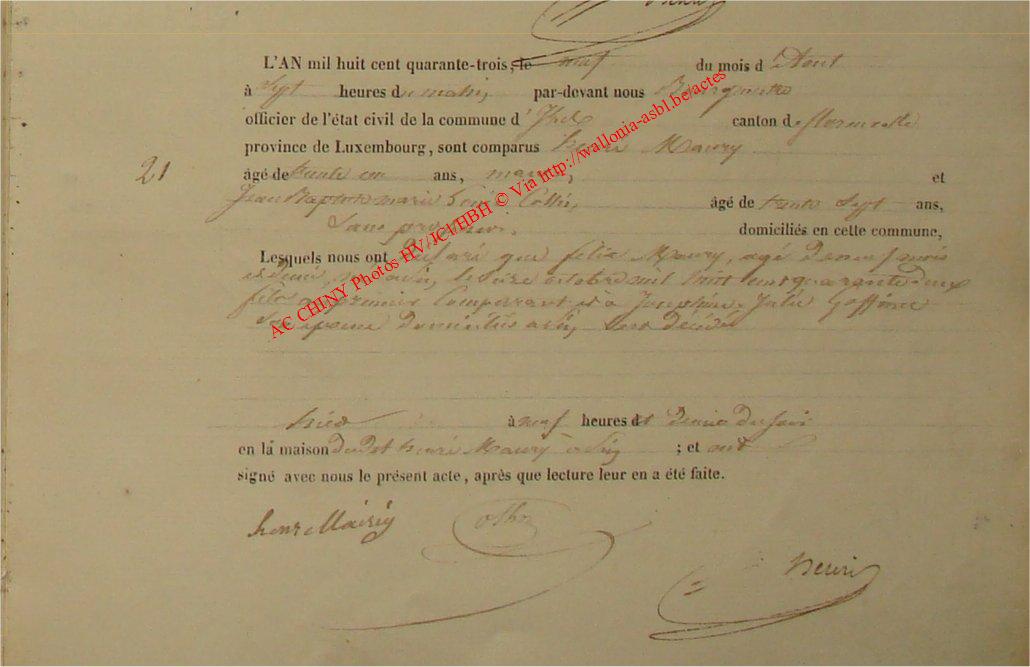 L'AN mil huit cent quarante-trois, le neuf du mois d'Aout
à sept heures du matin, par-devant nous Bourgmestre
officier de l'état civil de la commune d' canton de florenville
province de Luxembourg, sont comparus henri Maury
21
âgé de trente un ans, et
Jean Baptiste marie Collin, âgé de trente sept ans,
Sans profession. domiciliés en cette commune,
Lesquels nous ont déclaré que felix Maury, agé de neuf mois
et demi, né le octobre mil huit cent quarante deux
fils du premier Comparant et à Josephine Julie Goffinet
Son epouse domiciliés est décédé
hier à neuf heures et demie du soir
en la maison dudit henri Maury ; et ont
signé avec nous le présent acte, après que lecture leur en a été faite.
henri
henri
AC CHINY Photos HV/JCl/HBH © Via http://wallonia-asbl.be/actes